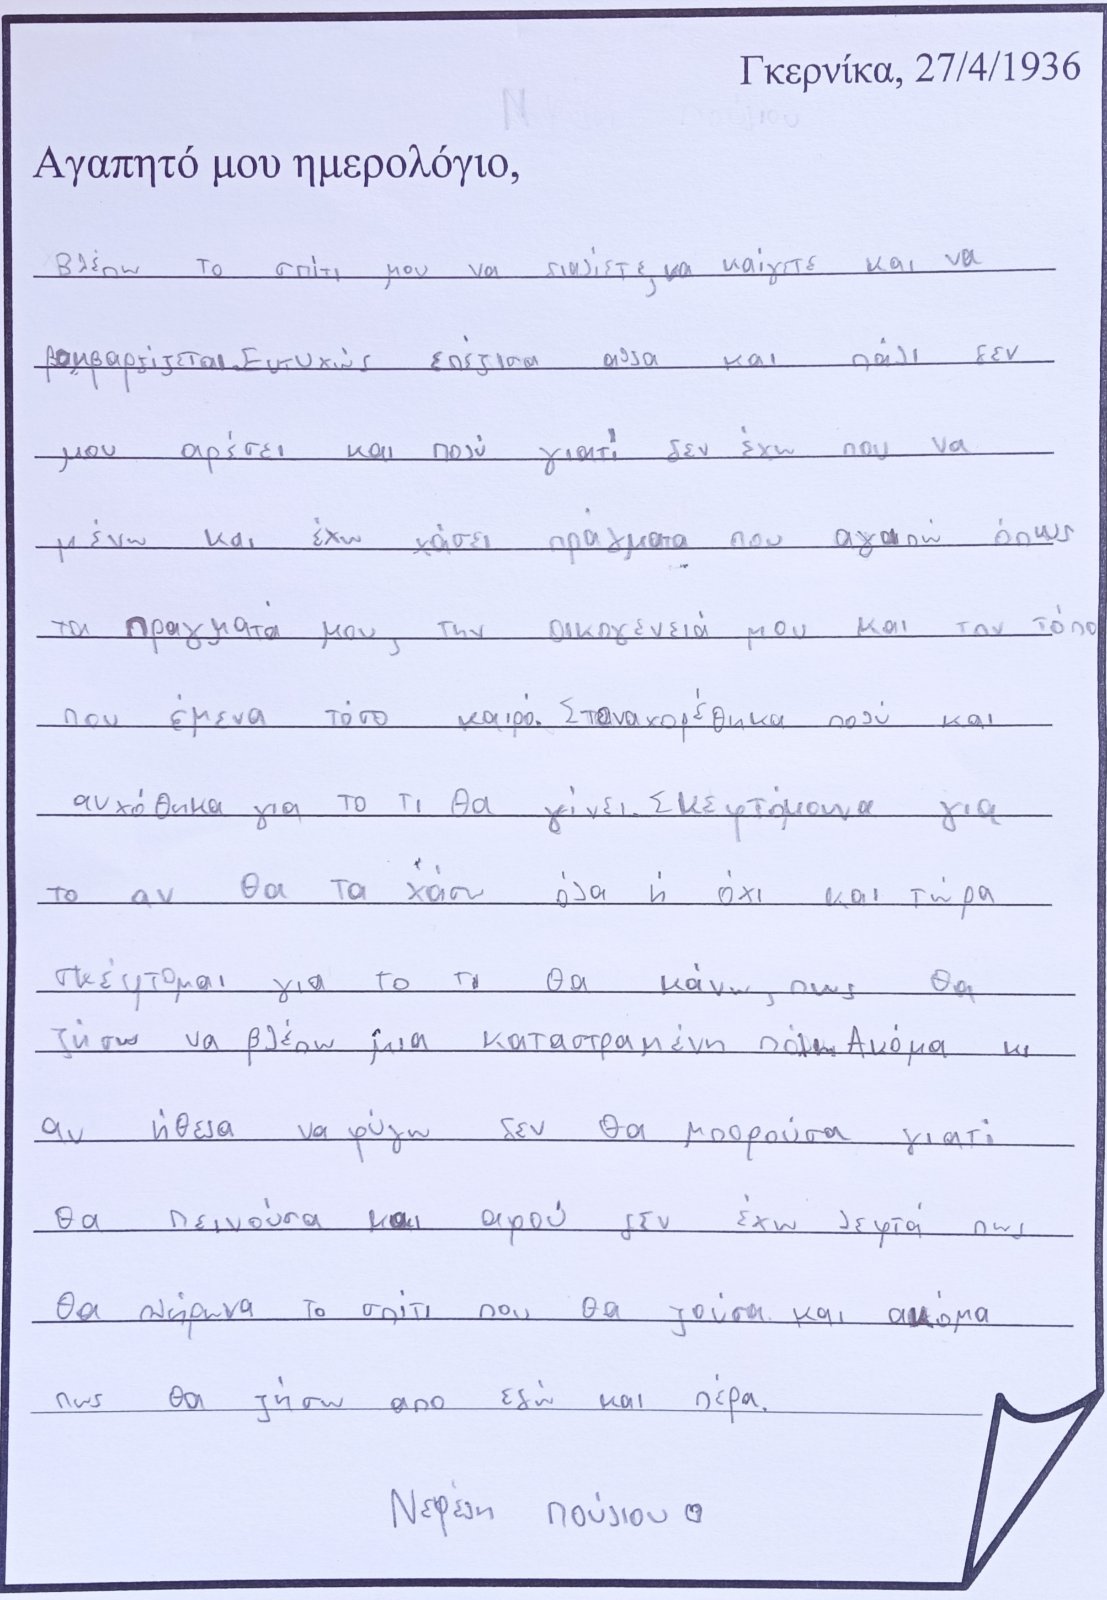 Γκερνίκα, 27/4/1936
Αγαπητό μου ημερολόγιο,
Βλέπω το σπίτι μου να διαλίετε, να καίγετε και να
βομβαρδίζεται. Ευτυχώς επέζισα αλλα και πάλι δεν
μου αρέσει και πολύ γιατί δεν έχω που να
μένω και έχω χάσει πράγματα που αγαπώ όπως
τα πραγματά μου, την οικογένειά μου και τον τόπο
που έμενα τόσο καιρό. Στεναχορέθηκα πολύ και
ανχόθηκα για το τι θα γίνει. Σκέφτόμουνα για
το αν θα τα χάσω όλα ή όχι και τώρα
σκέφτομαι για το τι θα κάνω, πως θα
ζήσω να βλέπω μια καταστραμένη πόλη. Ακόμα κι
αν ήθελα να φύγω δεν θα μπορούσα γιατί
θα πεινούσα και αφού δεν έχω λεφτά πως
θα πλήρωνα το σπίτι που θα ζούσα και ακόμα
πως θα ζήσω απο εδώ και πέρα.
Νεφέλη Πούλιου